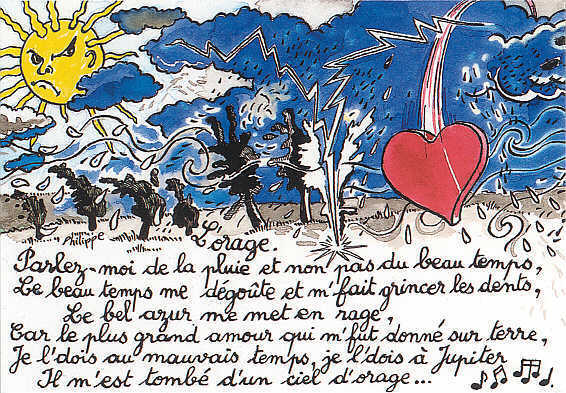 Philippe
L'orage.
Parlez-moi de la pluie et non pas du beau temps,
Le beau temps me dégoûte et m'fait grincer les dents,
Le bel azur me met en rage,
Car le plus grand amour qui m'fut donné sur terre,
Je l'dois au mauvais temps, je l'dois à Jupiter
Il m'est tombé d'un ciel d'orage...